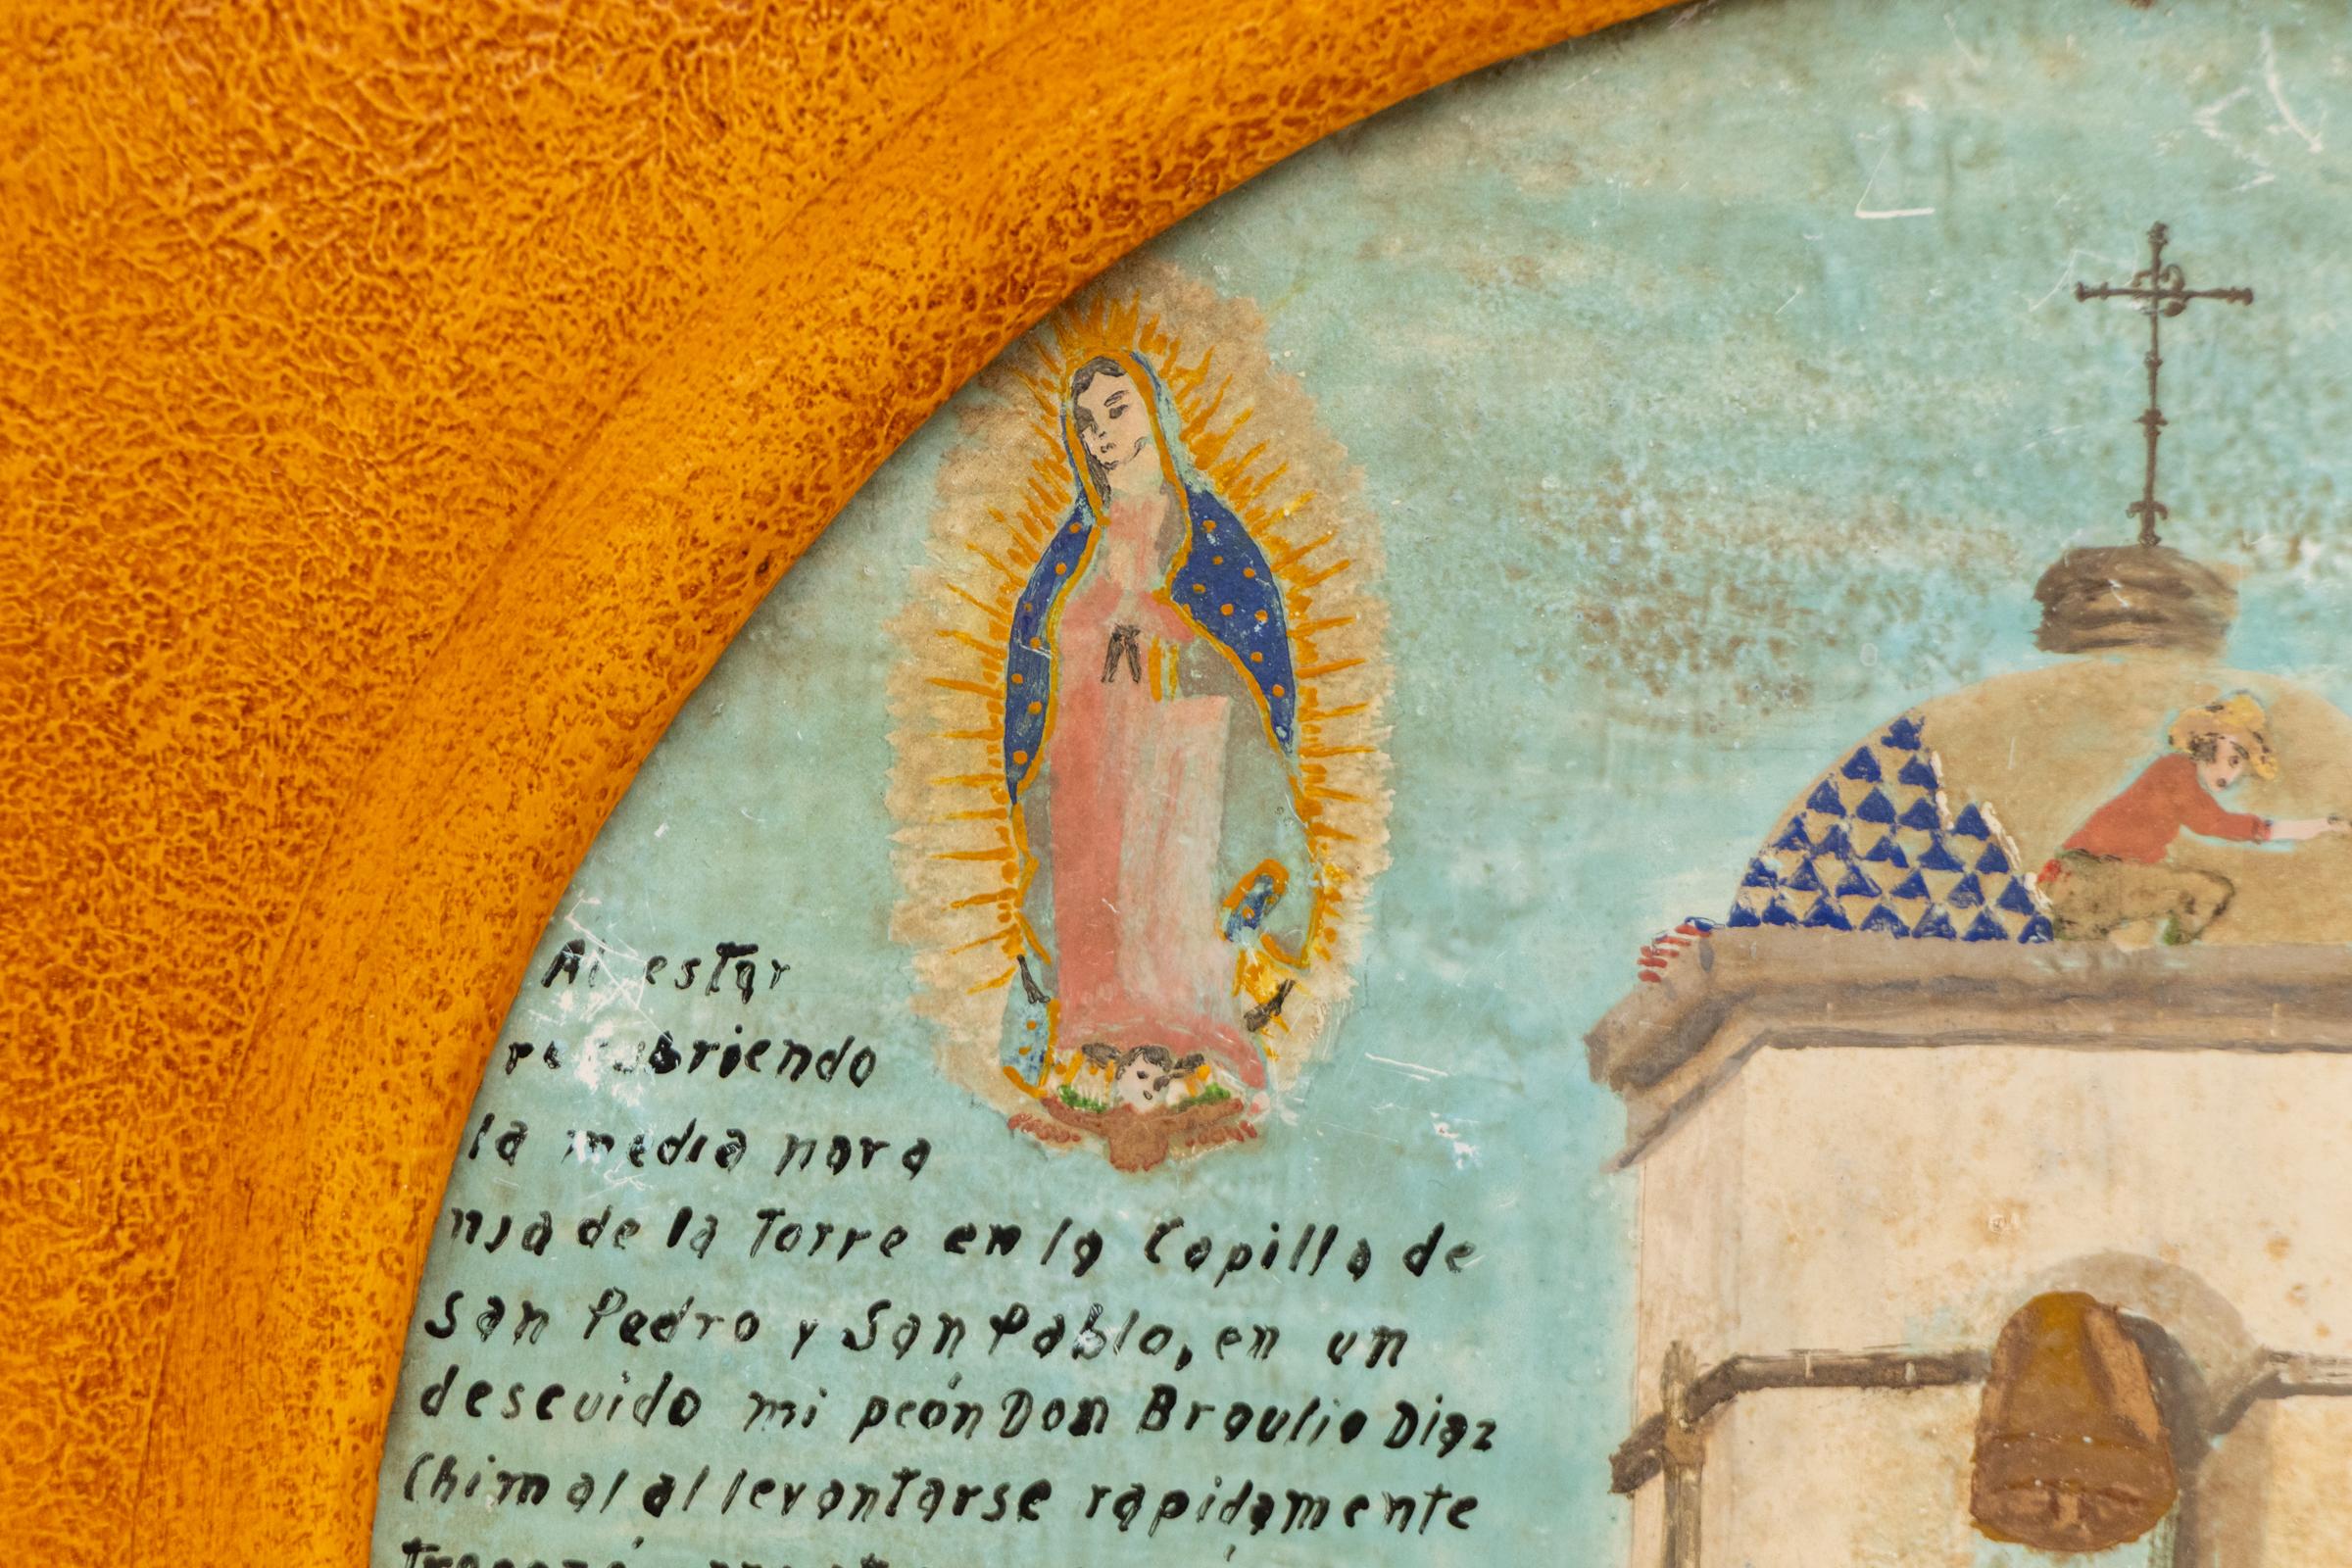 Al estar
recubriendo
la media nara
nja de la Torre en la Capilla de
San Pedro y San Pablo, en un
descuido mi peón Don Braulio Diaz
Chimal al levantarse rapidamente